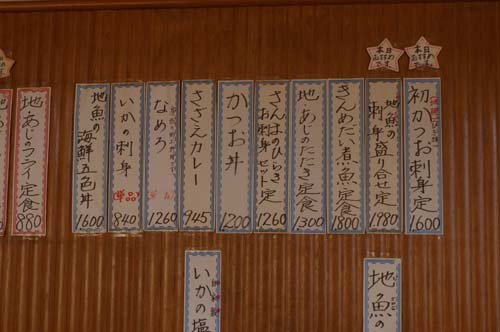 本日
おすすめ
です
本日
おすすめ
です
初かつお刺身定
1600
地魚の
刺身盛り合せ定
1980
きんめだい煮魚定食
1800
地あじのたたき定食
1300
さんまのひらき
お刺身セット定
1260
かつお丼
1200
さざえカレー
945
なめろ
1260
いかの刺身
(単品)
840
地魚の
海鮮五色丼
1600
地あじのフライ定食
880
地魚の
いかの塩